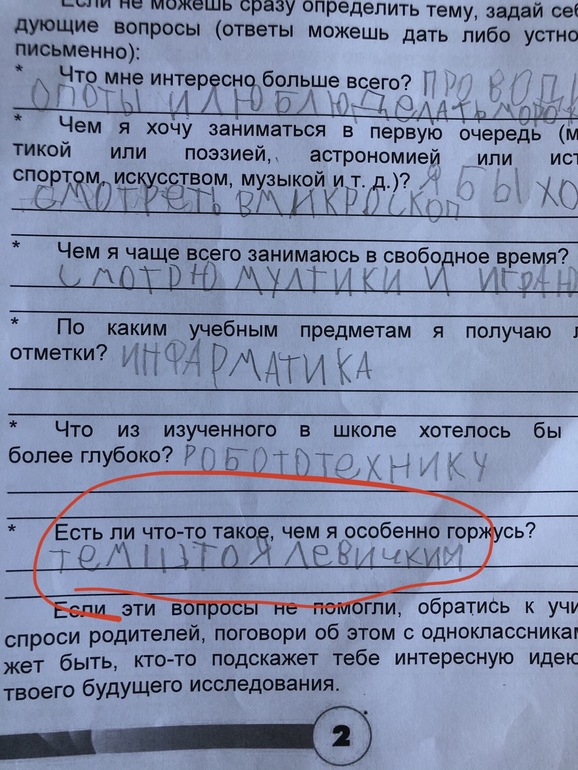 Если не можешь сразу определить тему, задай себ
дующие вопросы (ответы можешь дать либо устно
письменно):
* Что мне интересно больше всего? ПРОВОДИ
ОПОТЫ И ЛЮБЛЮ ДЕЛАТЬ МОРОЖ
* Чем я хочу заниматься в первую очередь (м
тикой или поэзией, астрономией или ист
спортом, искусством, музыкой и т. д.)? Я БЫ ХО
СМОТРЕТЬ В МИКРОСКОП
* Чем я чаще всего занимаюсь в свободное время?
СМОТРЮ МУЛТИКИ И ИГРАЮ
* По каким учебным предметам я получаю л
отметки? ИНФАРМАТИКА
* Что из изученного в школе хотелось бы
более глубоко? РОБОТОТЕХНИКУ
* Есть ли что-то такое, чем я особенно горжусь?
ЛЕВИЧКИМ
Если эти вопросы не помогли, обратись к учи
спроси родителей, поговори об этом с одноклассникам
жет быть, кто-то подскажет тебе интересную идею
твоего будущего исследования.
2